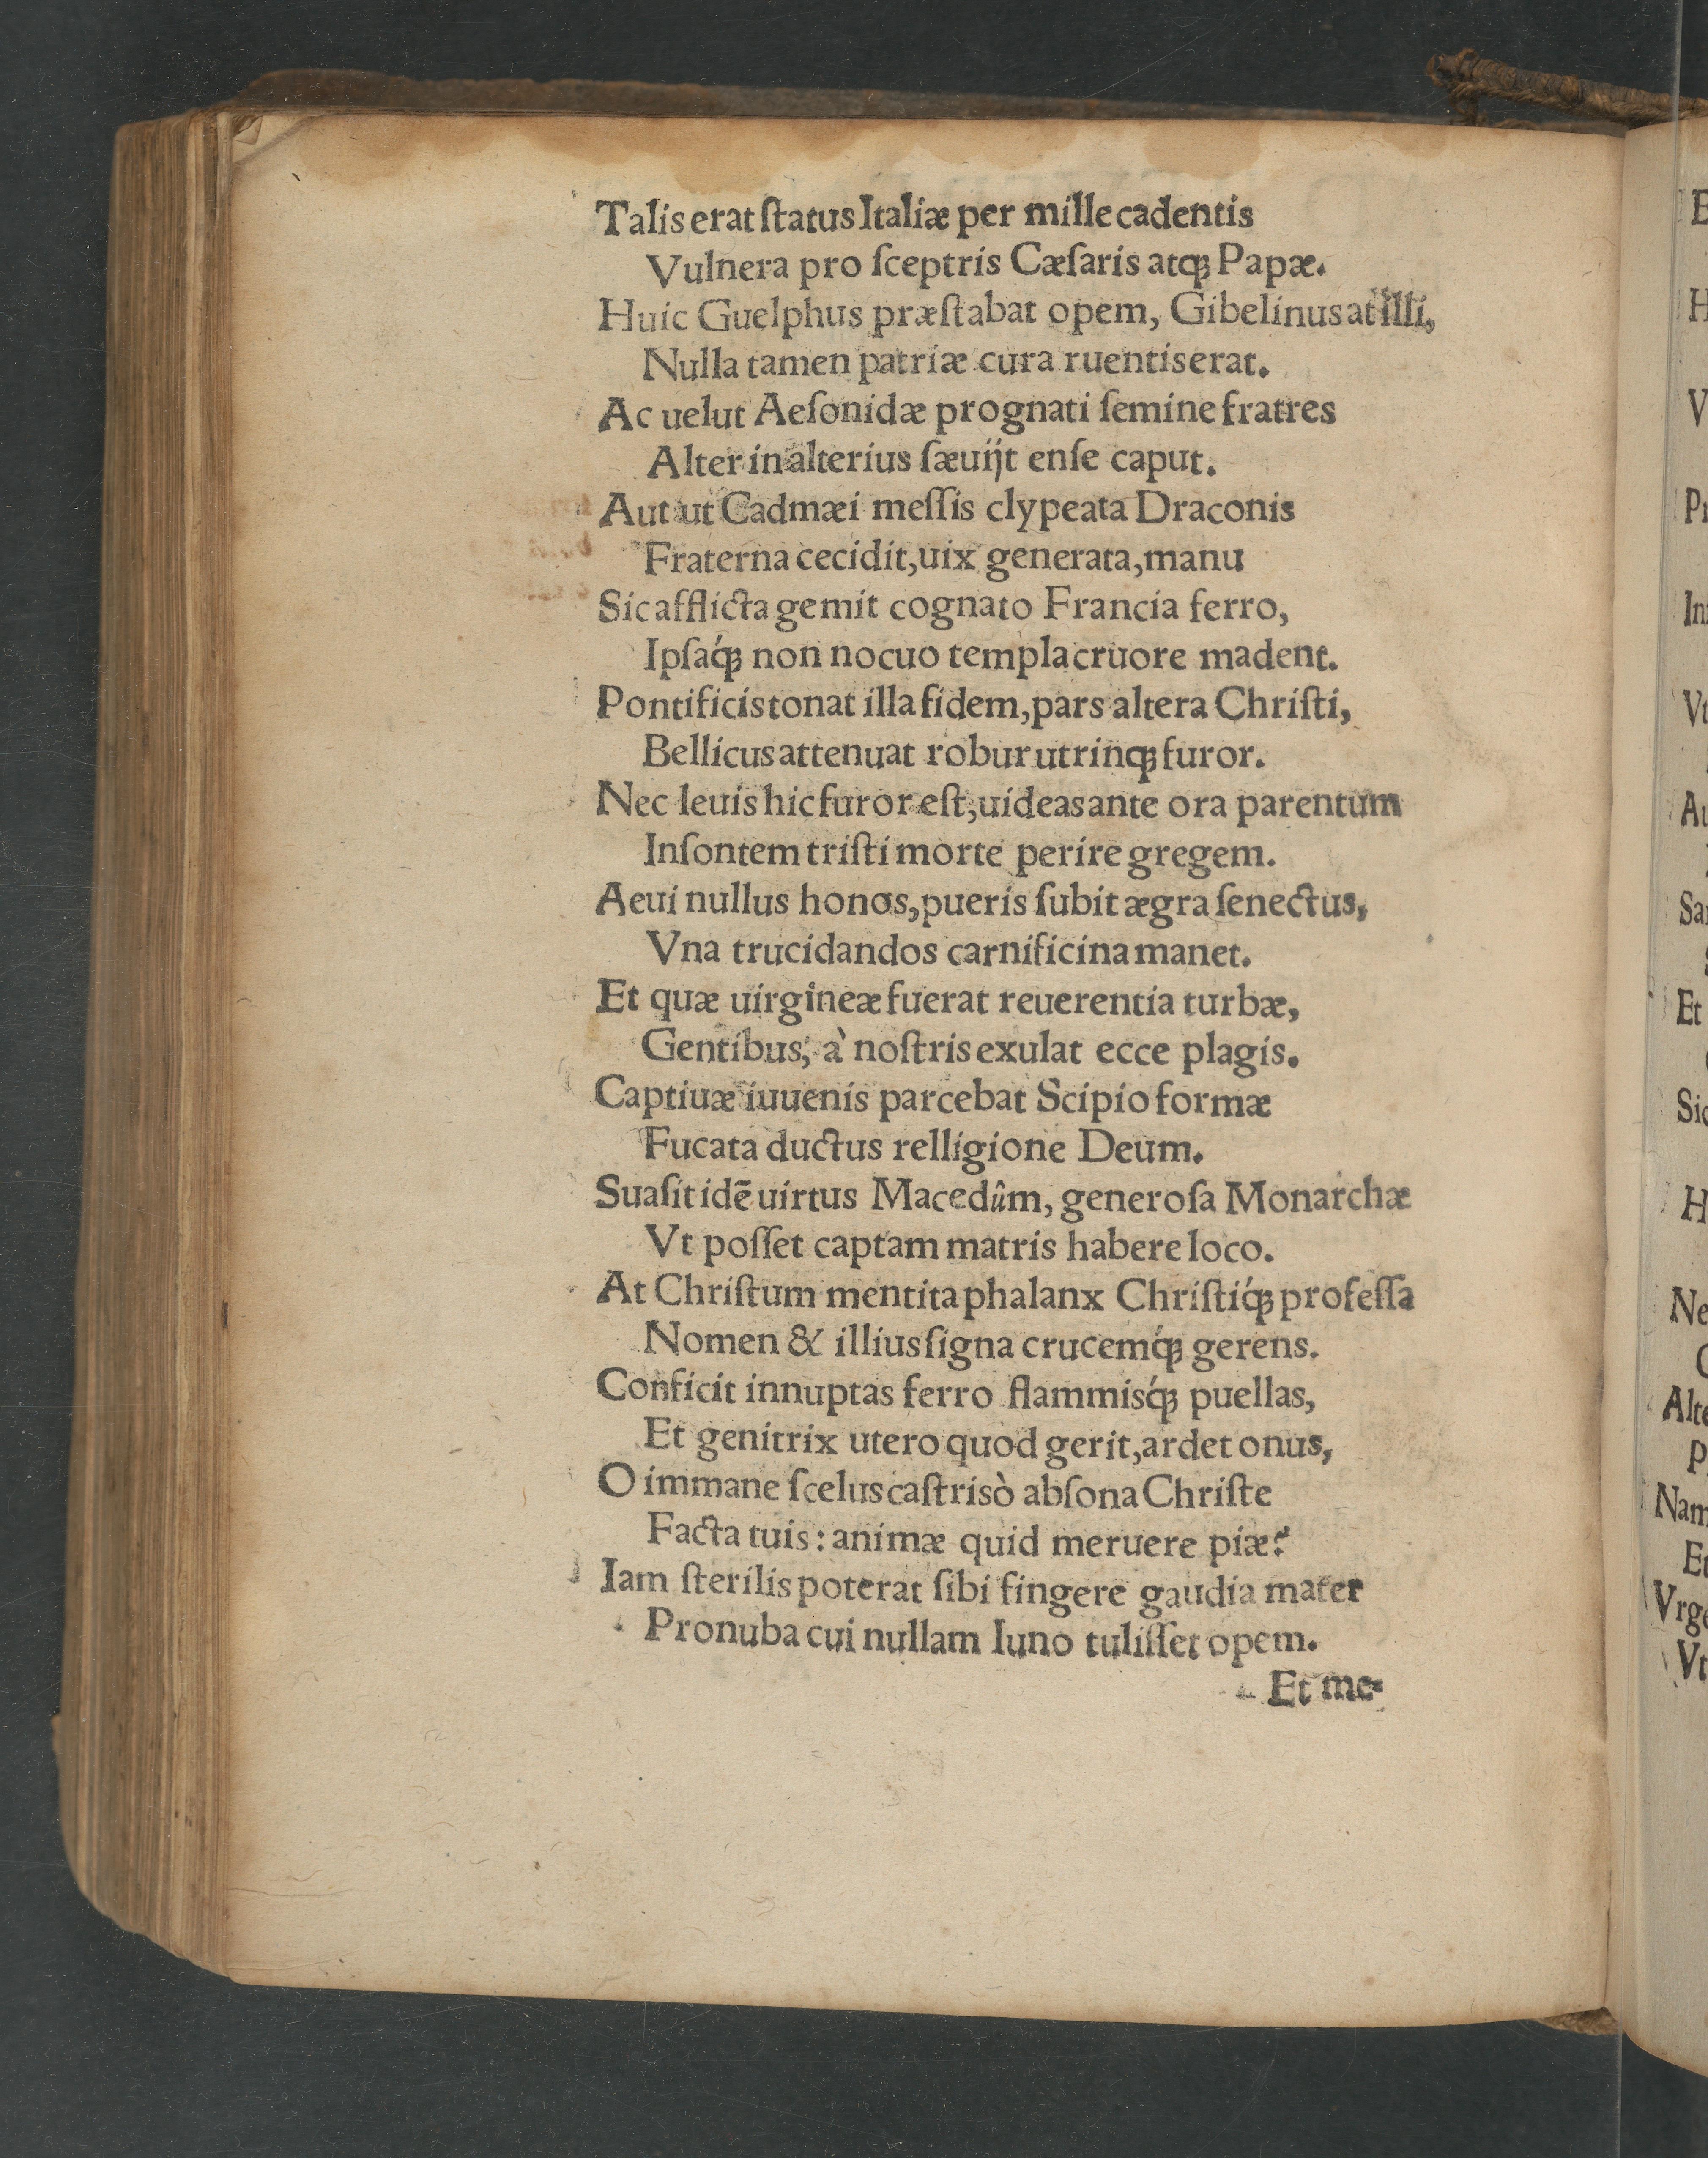 Talis erat ſtatus Italiæ per mille cadentis
Vulnera pro ſceptris Cæſaris atq́ꝫ Papæ.
Huic Guelphus præſtabat opem, Gibelinus at illi,
Nulla tamen patriæ cura ruentis erat.
Ac uelut Aeſonidæ prognati ſemine fratres
Alter in alterius ſæuijt enſe caput.
Aut ut Cadmæi meſſis clypeata Draconis
Fraterna cecidit, uix generata, manu
Sic afflicta gemit cognato Francia ferro,
Ipſaq́ꝫ non nocuo templa cruore madent.
Pontificis tonat illa fidem, pars altera Chriſti,
Bellicus attenuat robur utrinqꝫ furor.
Nec leuis hic furor eſt, uideas ante ora parentum
Inſontem triſti morte perire gregem.
Aeui nullus honos, pueris ſubit ægra ſenectus,
Vna trucidandos carnificina manet.
Et quæ uirgineæ fuerat reuerentia turbæ,
Gentibus, à noſtris exulat ecce plagis.
Captiuæ iuuenis parcebat Scipio formæ
Fucata ductus relligione Deum.
Suaſit idē uirtus Macedûm, generoſa Monarchæ
Vt poſſet captam matris habere loco.
At Chriſtum mentita phalanx Chriſtiq́ꝫ profeſſa
Nomen & illius ſigna crucemq́ꝫ gerens.
Conficit innuptas ferro flammisq́ꝫ puellas,
Et genitrix utero quod gerit, ardet onus,
O immane ſcelus caſtris ò abſona Chriſte
Facta tuis: animæ quid meruere piæ?
Iam ſterilis poterat ſibi fingere gaudia mater
Pronuba cui nullam Iuno tuliſſet opem.
Et me-